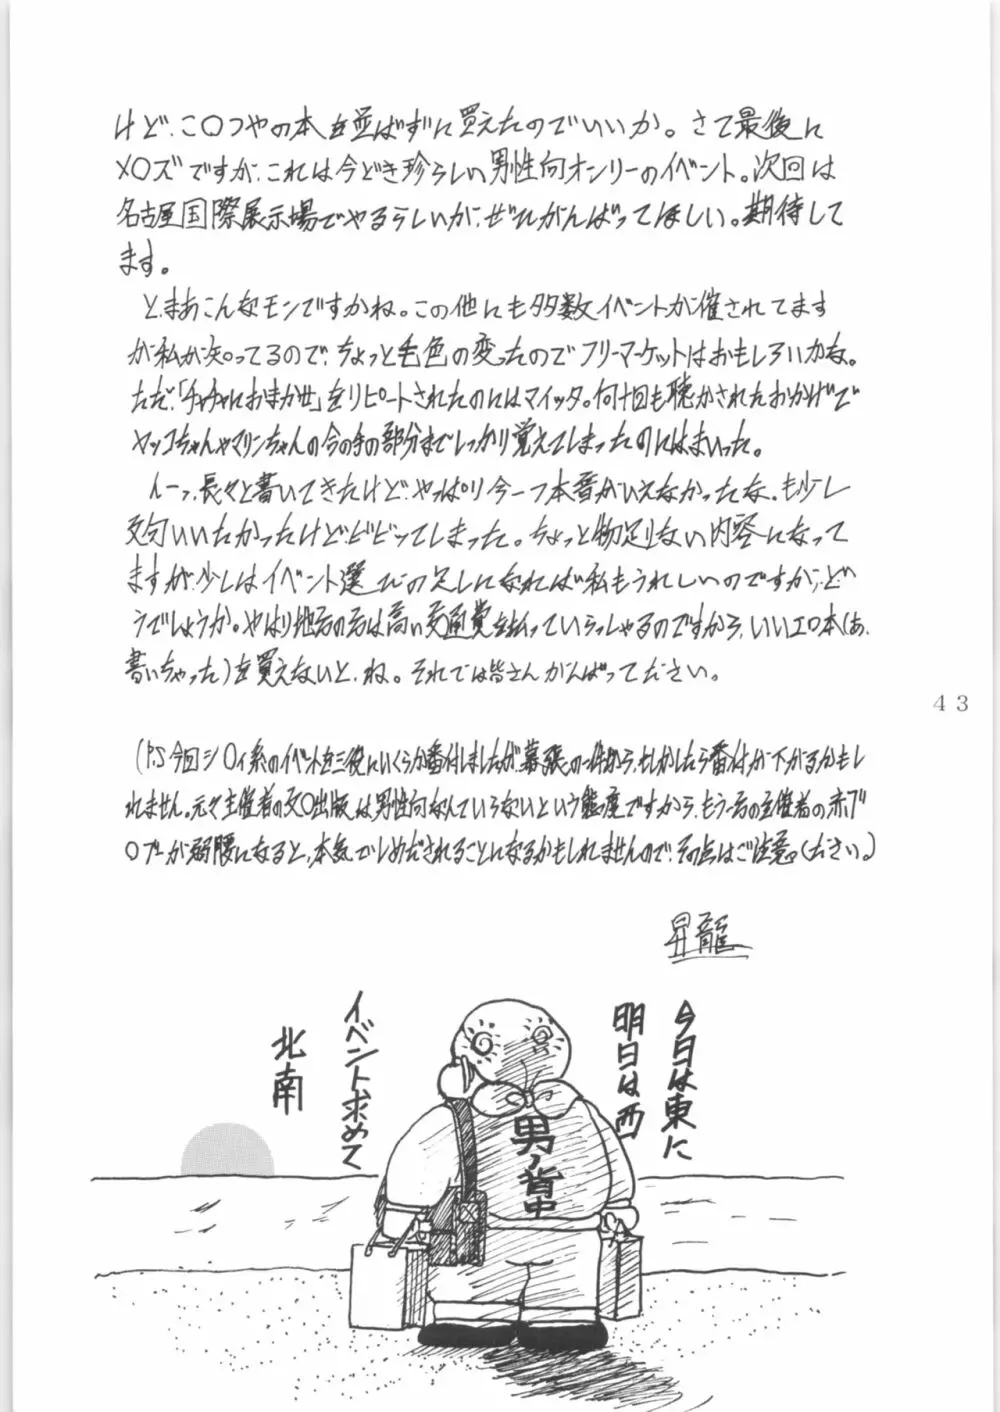 けど、こ〇つやの本を並ばずに買えたのでいいか。さて最後に
メ〇ズですが、これは今どき珍らしい男性向オンリーのイベント。次回は
名古屋国際展示場でやるらしいが、ぜひがんばってほしい。期待して
ます。
と、まあこんなモンですかね。この他にも多数イベントが催されてます
が私が知ってるので、ちょっと毛色の変ったのでフリーマーケットはおもしろいかな。
ただ、「チャチャにおまかせ」をリピートされたのにはマイッタ。何十回も聴かされたおかげで
ヤッコちゃんやマリンちゃんの今の手の部分までしっかり覚えてしまったのにはまいった。
んーっ、長々と書いてきたけど、やっぱり今一つ本音がいえなかったな。も少し
文句いいたかったけどビビッてしまった。ちょっと物足りない内容になって
ますが、少しはイベント選びの足しになれば私もうれしいのですが、ど
うでしょうか。やはり地方の方は高い交通費を払っていらっしゃるのですから、いいエロ本(あ、
書いちゃった)を買えないと、ね。それでは皆さんがんばってください。
(P.S 今回シ〇ィ系のイベントを三役にいくらか番付しましたが、幕張の一件から、もしかしたら番付が下がるかもし
れません。元々主催者の文〇出版は男性向なんていらないという態度ですから、もう一方の主催者の赤ブ
〇ブーが弱腰になると、本気でしめだされることになるかもしれませんので、その点はご注意。ください。)
昇龍
今日は東に
明日は西
イベント求めて
北南
男ノ背中
43